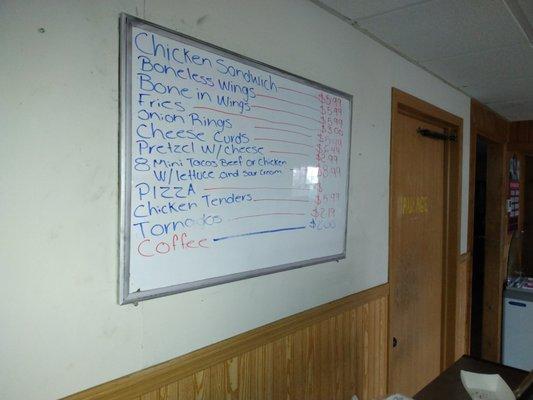 Chicken Sandwich $5.99
Boneless Wings $5.99
Bone in Wings $5.99
Fries $3.00
Onion Rings
Cheese Curds
Pretzel W/cheese $2.99
8 Mini Tacos Beef or Chicken $8.99
W/lettuce and sour cream
PIZZA $
Chicken Tenders $5.99
Tornados $2.19
Coffee $2.00